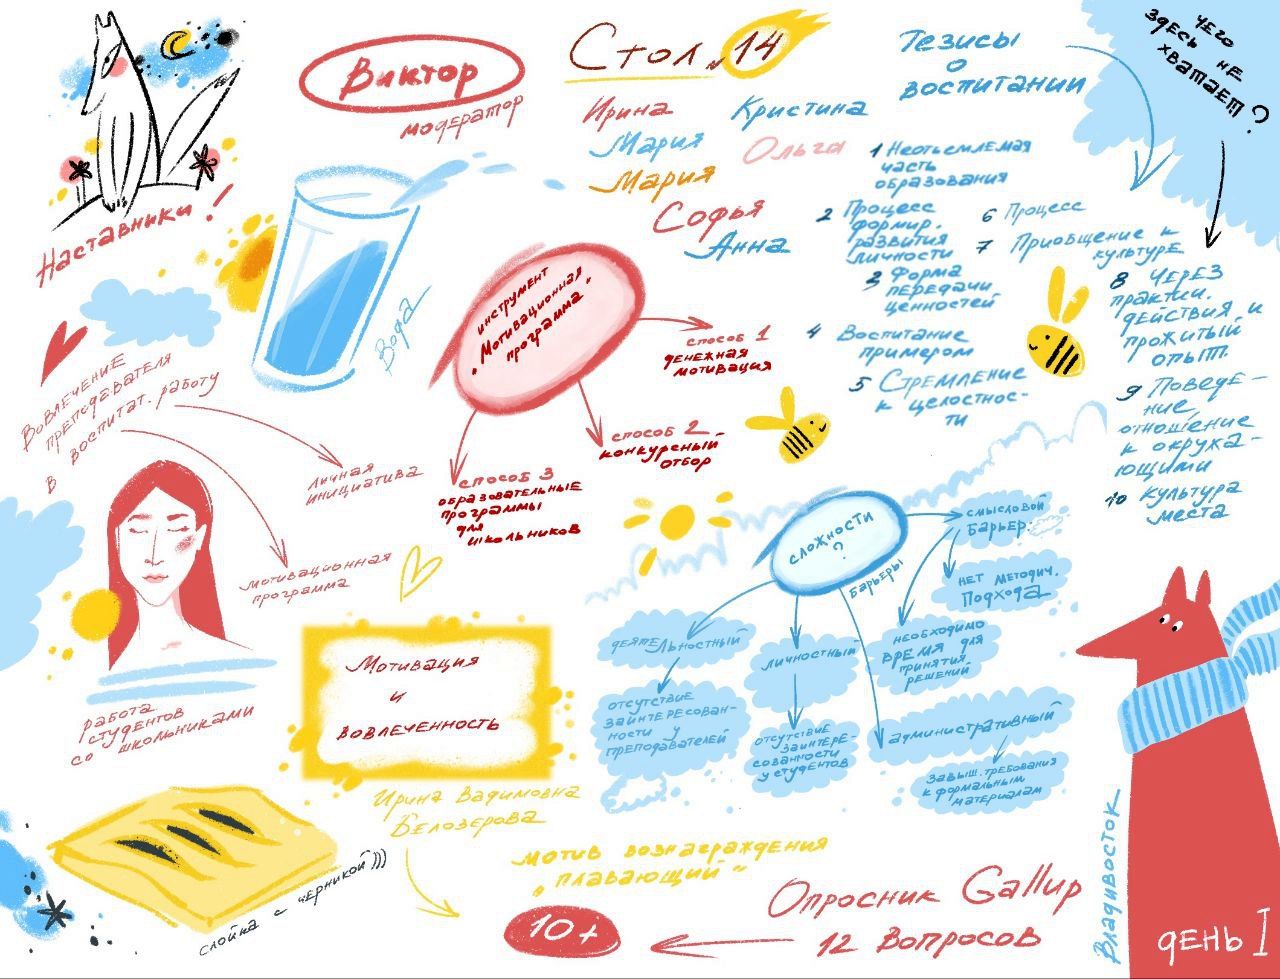 Наставники!
Виктор
модератор
Стол №14
Ирина
Кристина
Мария
Ольга
Мария
Софья
Анна
Тезисы
о
воспитании
чего
здесь не
хватает?
1 Неотъемлемая
часть
образования
2 Процесс
формир.
развития
личности
3 Форма
передачи
ценностей
4 Воспитание
примером
5 Стремление
к целостнос-
ти
6 Процесс
7 Приобщение к
культуре
8 ЧЕРЕЗ
практич.
действия и
прожитый
опыт.
9 Поведе-
ние,
отношение
к окружа-
ющими
10 культура
места
Вода
инструмент
"Мотивационная
программа"
способ 1
денежная
мотивация
способ 2
конкурсный
отбор
способ 3
образовательные
программы
для
школьников
Вовлечение
преподавателя
в воспитат. работу
личная
инициатива
мотивационная
программа
работа
студентов
со школьниками
Мотивация
и
вовлеченность
Ирина Вадимовна
Белозерова
сложности
?
барьеры
смысловой
барьер:
нет методич.
подхода
необходимо
время для
принятия
решений
деятельностный
отсутствие
заинтересован-
ности у
преподавателей
личностный
отсутствие
заинтере-
сованности
у студентов
административный
завыш. требования
к формальным
материалам
слойка с черникой)))
мотив вознаграждения
"плавающий"
10+
Опросник Gallup
12 вопросов
Владивосток
день I